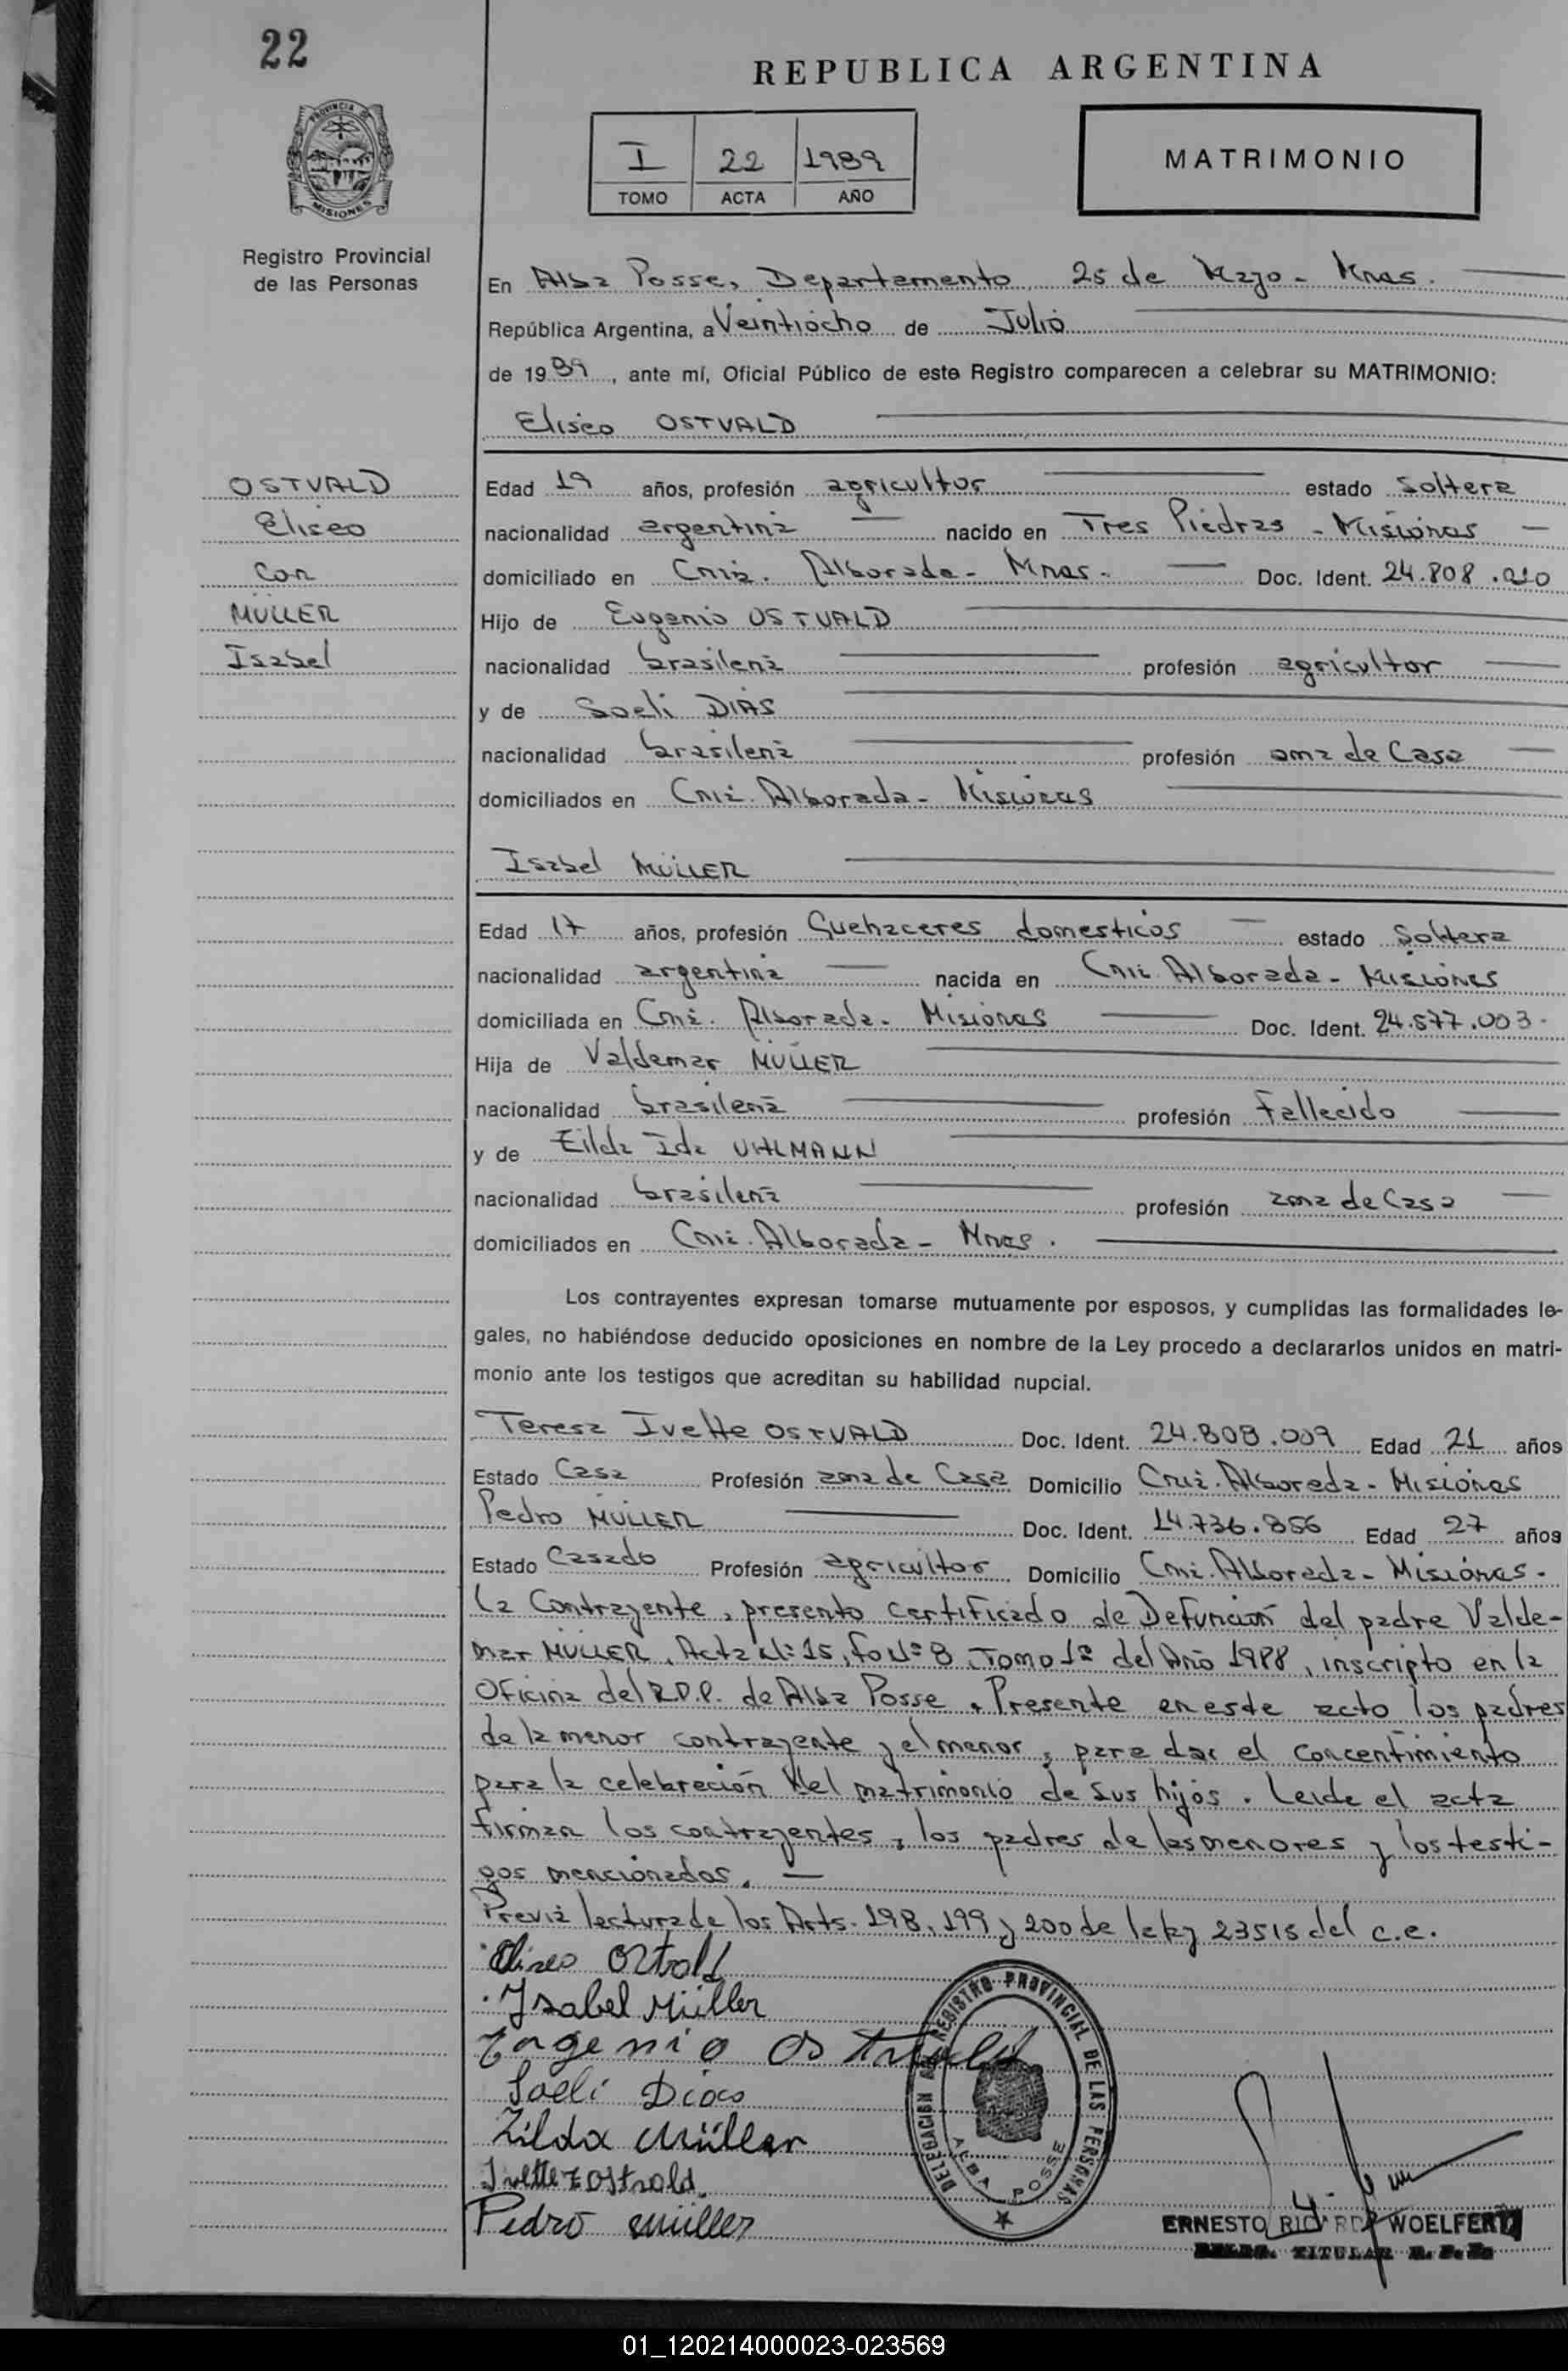 22
REPUBLICA ARGENTINA
I 22 1989
TOMO ACTA AÑO
MATRIMONIO
PROVINCIA
MISIONES
Registro Provincial
de las Personas
En Alba Posse, Departamento 25 de Mayo - Mnes.
República Argentina, a Veintiocho de Julio
de 1989, ante mí, Oficial Público de este Registro comparecen a celebrar su MATRIMONIO:
Eliseo OSTVALD
OSTVALD
Eliseo
con
MÜLLER
Isabel
Edad 19 años, profesión agricultor estado Soltera
nacionalidad argentina nacido en Tres Piedras - Misiones
domiciliado en Cnia. Alborada - Mnes. Doc. Ident. 24.808.010
Hijo de Eugenio OSTVALD
nacionalidad brasilena profesión agricultor
y de Soeli DIAS
nacionalidad brasilena profesión ama de Casa
domiciliados en Cnia. Alborada - Misiones
Isabel MÜLLER
Edad 17 años, profesión Quehaceres domesticos estado Soltera
nacionalidad argentina nacida en Cnia. Alborada - Misiones
domiciliada en Cnia. Alborada - Misiones Doc. Ident. 24.577.003
Hija de Valdemar MÜLLER
nacionalidad brasilena profesión Fallecido
y de Zilda Ida UHLMANN
nacionalidad brasilena profesión ama de Casa
domiciliados en Cnia. Alborada - Mnes.
Los contrayentes expresan tomarse mutuamente por esposos, y cumplidas las formalidades le-
gales, no habiéndose deducido oposiciones en nombre de la Ley procedo a declararlos unidos en matri-
monio ante los testigos que acreditan su habilidad nupcial.
Teresa Ivette OSTVALD Doc. Ident. 24.808.009 Edad 21 años
Estado Casa Profesión ama de Casa Domicilio Cnia. Alborada - Misiones
Pedro MÜLLER Doc. Ident. 14.736.856 Edad 27 años
Estado Casado Profesión agricultor Domicilio Cnia. Alborada - Misiones.
La Contrayente, presento certificado de Defunción del padre Valde-
mar MÜLLER, Acta Nº 15, foNº 8, Tomo 1º del Año 1988, inscripto en la
Oficina del R.P.P. de Alba Posse. Presente en este acto los padres
de la menor contrayente y el menor, para dar el concentimiento
para la celebración del matrimonio de sus hijos. Leida el acta
firman los contrayentes, los padres de los menores y los testi-
gos mencionados. —
Previa lectura de los Arts. 198, 199 y 200 de la ley 23515 del c.c.
Eliseo Ostvald
Isabel Müller
Eugenio Ostvald
Soeli Dias
Zilda Müller
Ivette T Ostvald
Pedro Müller
DELEGACION REGISTRO PROVINCIAL DE LAS PERSONAS
ALBA POSSE
ERNESTO RICARDO WOELFERT
DELEG. TITULAR R. P. P.
01_120214000023-023569